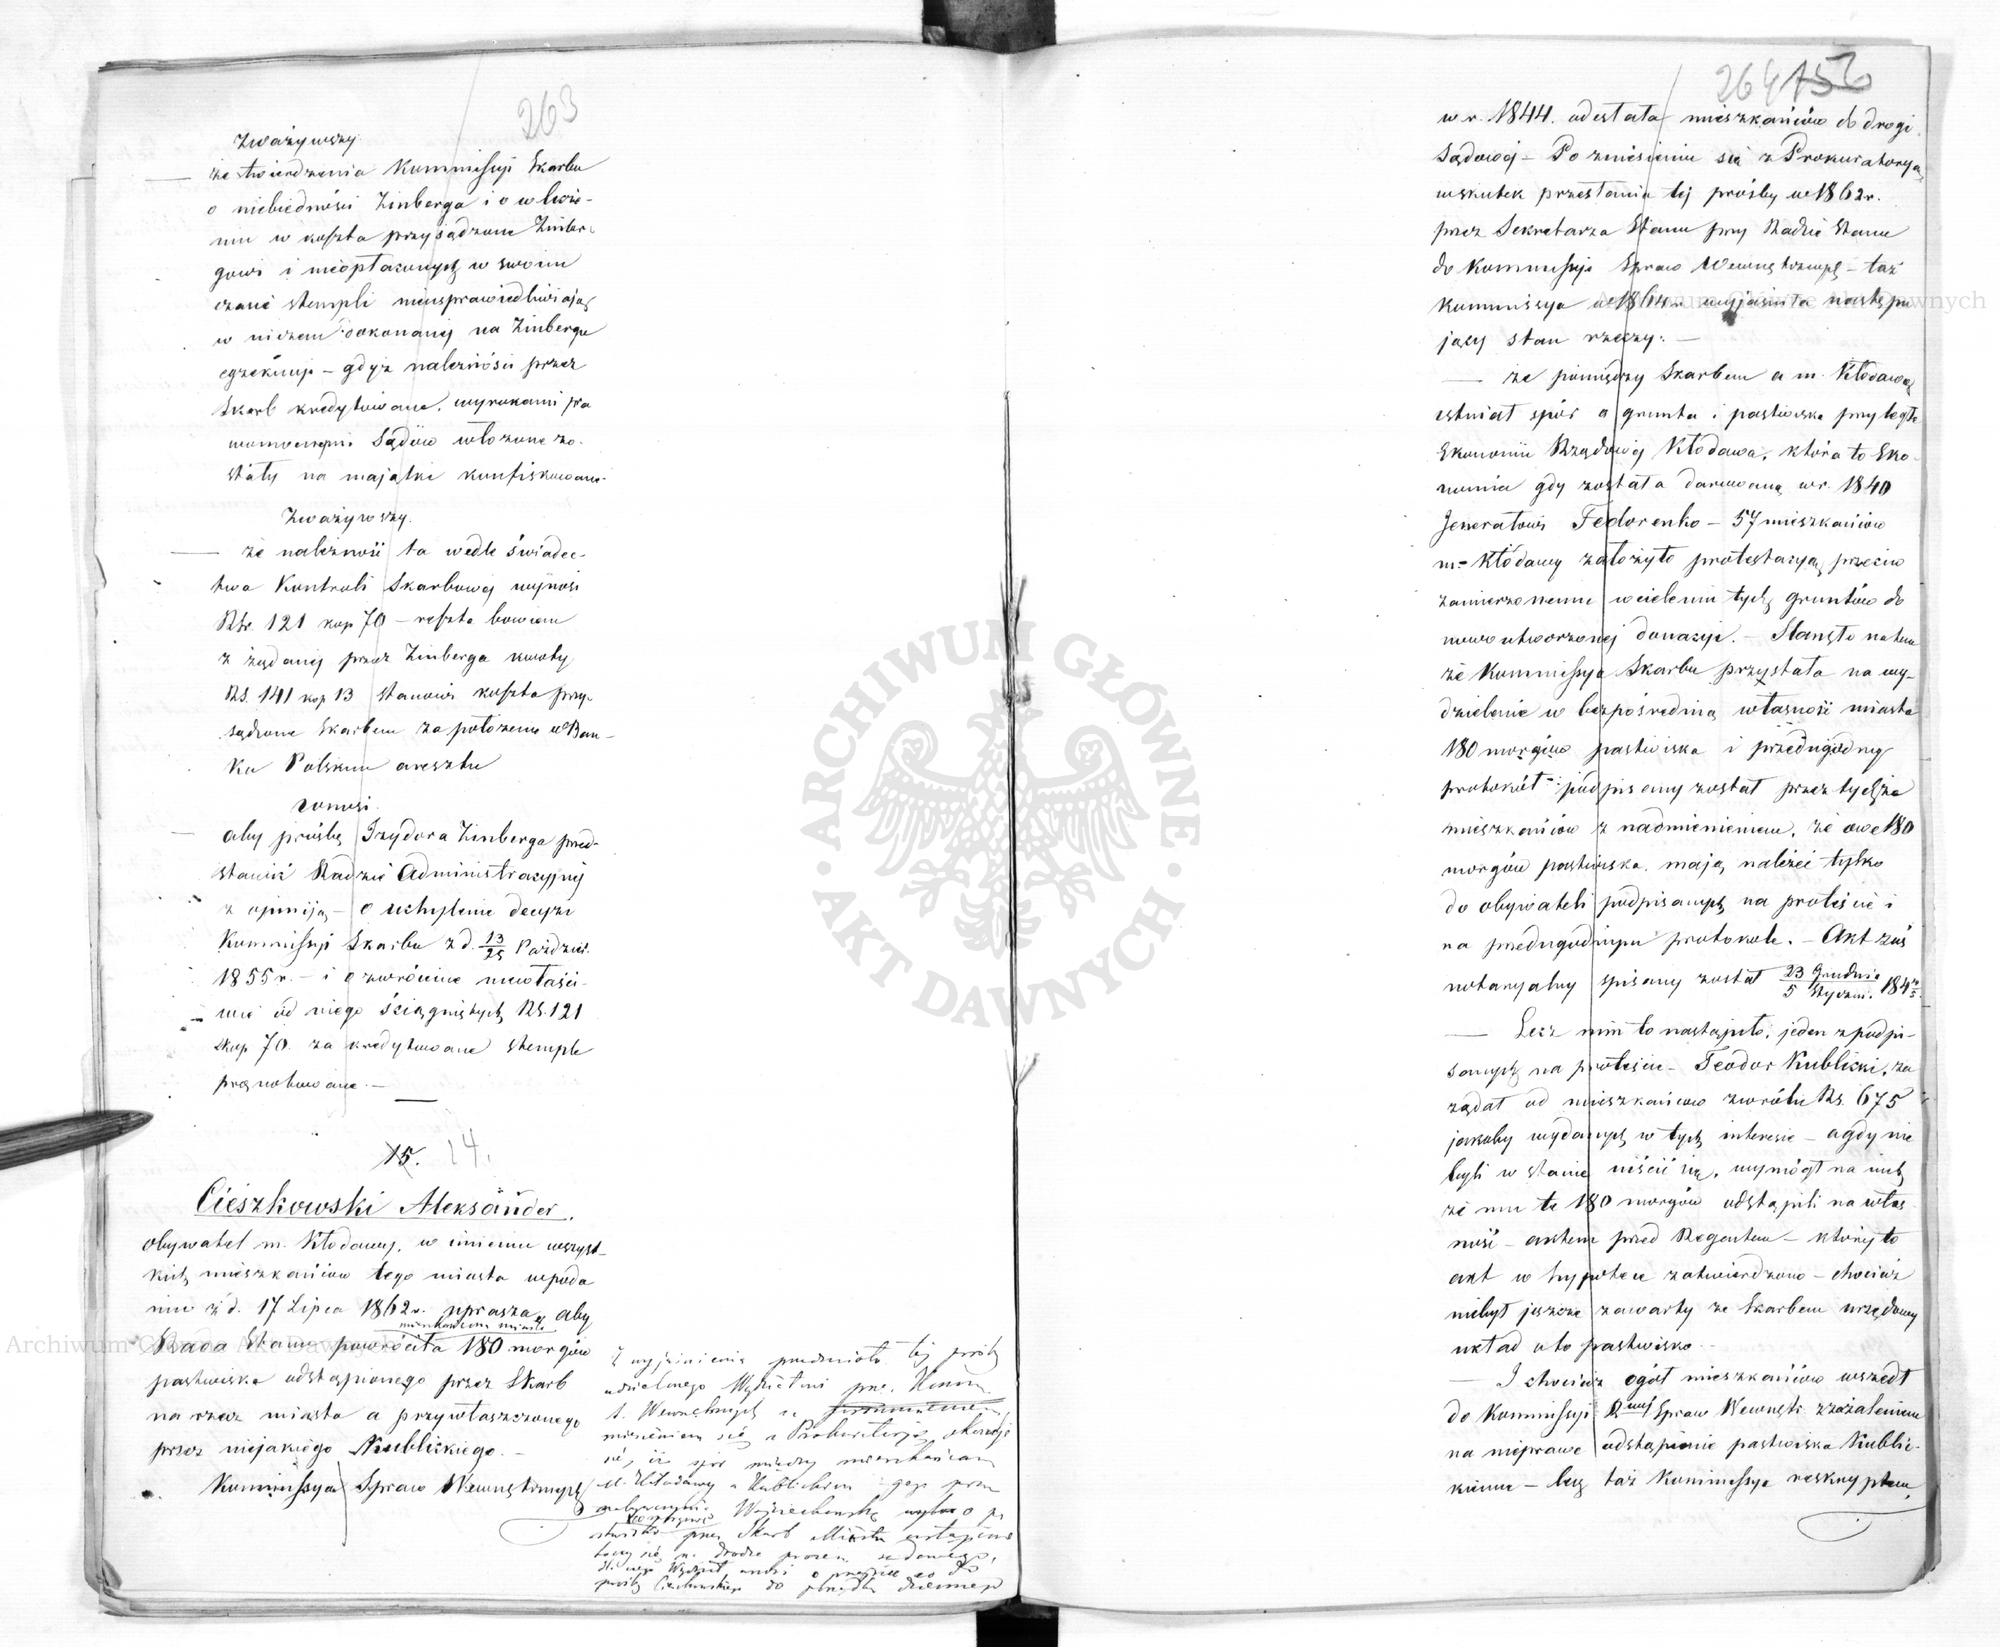 263
Zważywszy
że twierdzenia Kommissyi Skarbu
o niebiedności Zinberga i o wlicze-
niu w koszta przysądzone Zinber-
gowi i nieopłaconych w swoim
czasie stempli nieusprawiedliwiają
w niczem dokonanej na Zinbergu
egzekucyi – gdyż należności przez
Skarb kredytowane, wyrokami pra
womocnymi Sądów włożone zo-
stały na majątki konfiskowane.
Zważywszy.
że należność ta wedle świadec-
twa Kontroli Skarbowej wynosi
Rsr. 121 kop 70 – reszta bowiem
z żądanej przez Zinberga kwoty
RS. 141 kop 13 stanowi koszta przy-
sądzone Skarbem za położenie w Ban-
ku Polskim aresztu
wnosi.
aby prośbę Izydora Zinberga przed-
stawić Radzie Administracyjnej
z opiniją – o uchylenie decyzi
Kommissyi Skarbu z d. 13/25 Paździer.
1855 r. – i o zwrócenie niewłaści-
wie od niego ściągniętych RS. 121
kop 70. za kredytowane stemple
prenotowane. –
15. 14.
Cieszkowski Aleksander.
obywatel m. Kłodawy, w imieniu wszyst-
kich mieszkańców tego miasta w poda
niu z d. 17 Lipca 1862 r. uprasza, aby
mieszkańcom miasta
Rada Stanu powróciła 180 morgów
pastwiska odstąpionego przez Skarb
na rzecz miasta a przywłaszczonego
przez niejakiego Kublickiego. –
Kommissya Spraw Wewnętrznych
Z wyjaśnienia przedmiotu tej prośby
udzielonego Wydziałowi przez Komm.
S. Wewnętrznych
zniesieniem się z Prokuratoryą okazuje
się, iż spór między mieszkańcami
M. Kłodawy a Kublickim
o pa
stwisko przez Skarb Miastu ustąpione
toczy się na drodze procesu sądowego,
dla czego Wydział wnosi o przejście co do
prośby Cieszkowskiego do porządku dziennego
264 156
w r. 1844. odesłała mieszkańców do drogi
Sądowej – Po zniesieniu się z Prokuratoryą
wskutek przesłania tej prośby w 1862 r.
przez Sekretarza Stanu przy Radzie Stanu
do Kommissyi Spraw Wewnętrznych – taż
Kommissya w 1864 r. wyjaśniła następu
jący stan rzeczy: –
że pomiędzy Skarbem a m. Kłodawą
istniał spór o grunta i pastwiska przyległe
Ekonomii Rządowej Kłodawa, która to Eko-
nomia gdy została darowaną w r. 1840
Jenerałowi Fedorenko – 57 mieszkańców
m. Kłodawy założyło protestacyą przeciw
zamierzonemu wcieleniu tych gruntów do
nowo utworzonej donacyi. – Stanęło na tem
że Kommissya Skarbu przystała na wy-
dzielenie w bezpośrednią własność miasta
180 morgów pastwiska i przedugodny
protokół podpisany został przez tychże
mieszkańców z nadmienieniem, że owe 180
morgów pastwiska mają należeć tylko
do obywateli podpisanych na proteście i
na przedugodnym protokole. – Akt zaś
notaryalny spisany został 23 Grudnia / 5 Stycznia 184 4/5.
Lecz nim to nastąpiło, jeden z podpi-
sanych na proteście – Teodor Kublicki, za
żądał od mieszkańców zwrotu Rs. 675
jakoby wydanych w tych interesie – a gdy nie
byli w stanie uiścić się, wymógł na nich
że mu te 180 morgów odstąpili na włas
ność – aktem przed Regentem – który to
akt w hypotece zatwierdzono – chociaż
niebył jeszcze zawarty ze Skarbem urzędowy
układ o to pastwisko. –
I chociaż ogół mieszkańców wszedł
do Kommissyi Rząowej Spraw Wewnętr. z zażaleniem
na nieprawe odstąpienie pastwiska Kublic-
kiemu – lecz taż Kommissya reskryptem
Archiwum Główne Akt Dawnych
Archiwum Główne Akt Dawnych
ARCHIWUM GŁÓWNE · AKT DAWNYCH ·